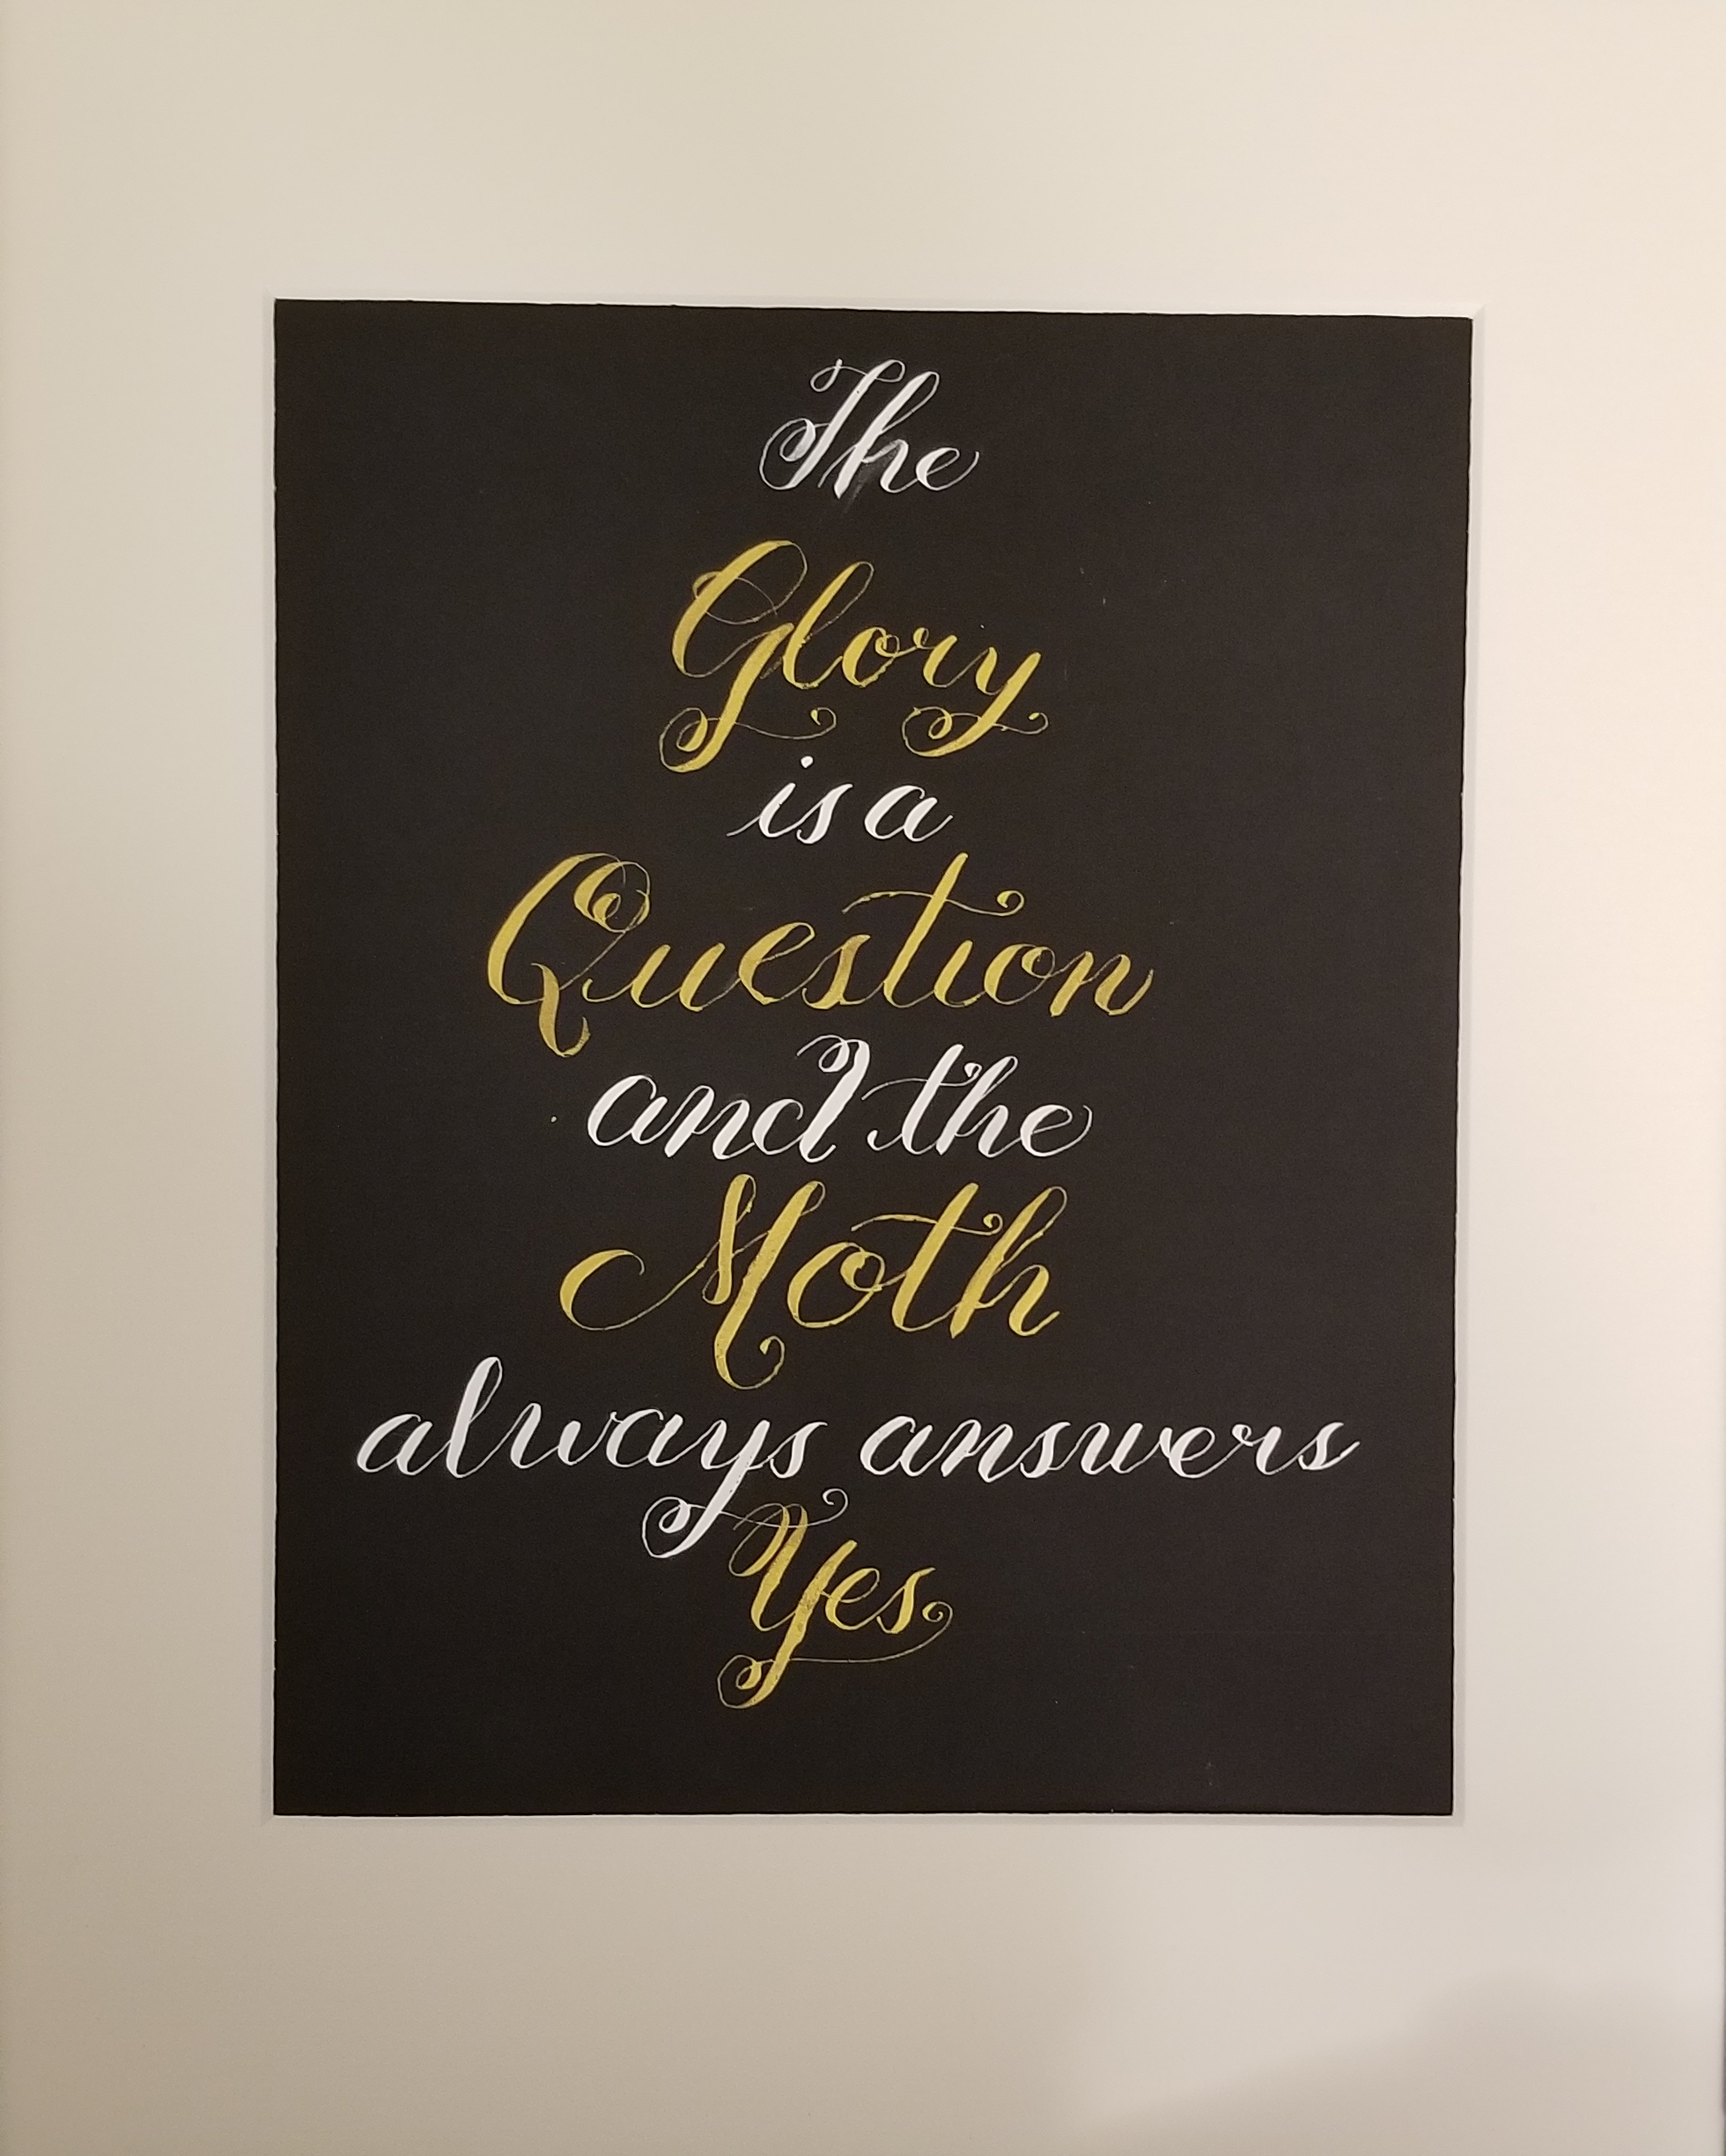 The
Glory
is a
Question
and the
Moth
always answers
Yes